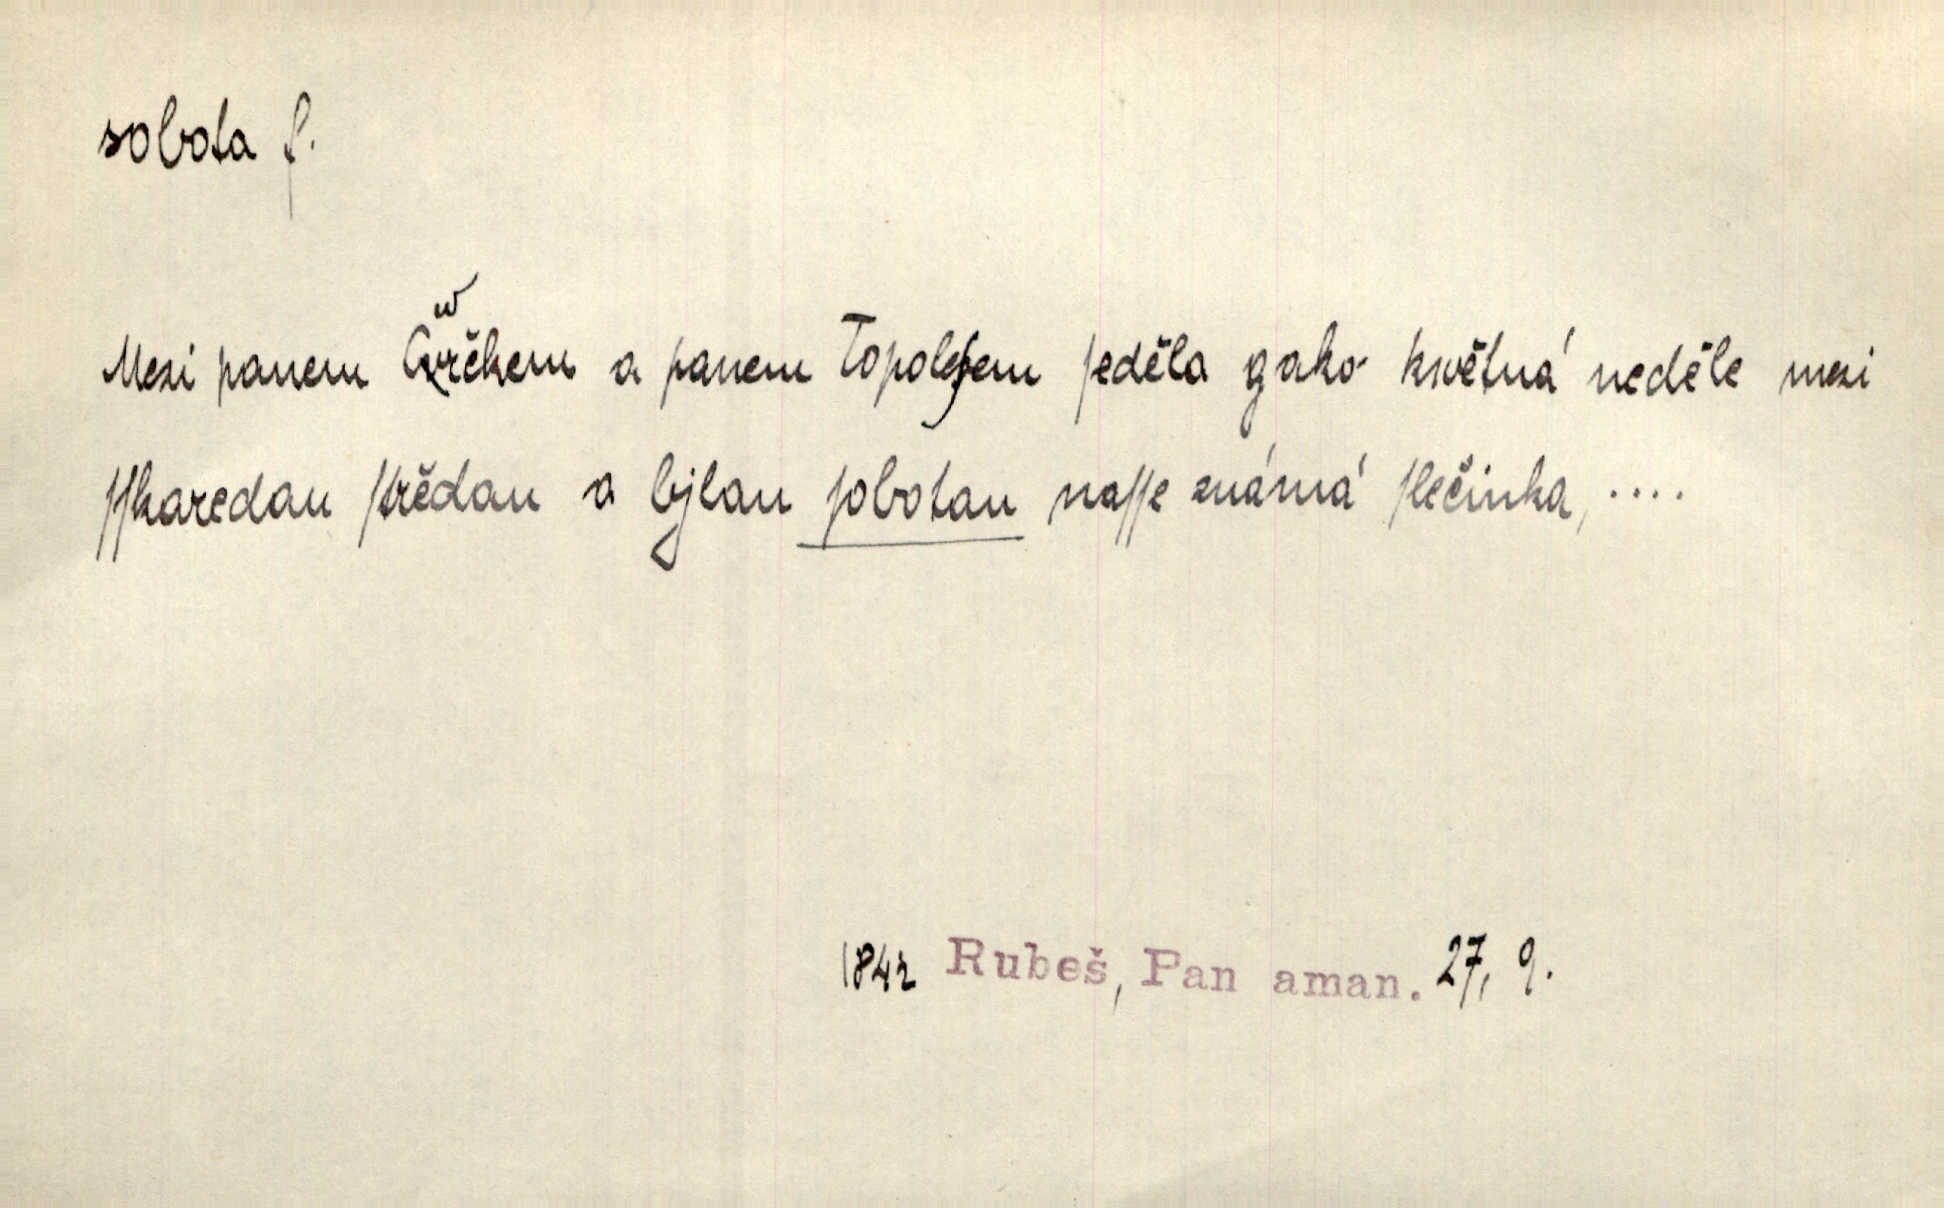 sobota f.
Mezi panem Cwrčkem a panem Topolegſem ſeděla gako květná neděle mezi
ſſkaredau ſtředau a bjlau ſobotau naſſe známá ſlečinka, ....
1842 Rubeš, Pan aman. 27, 9.